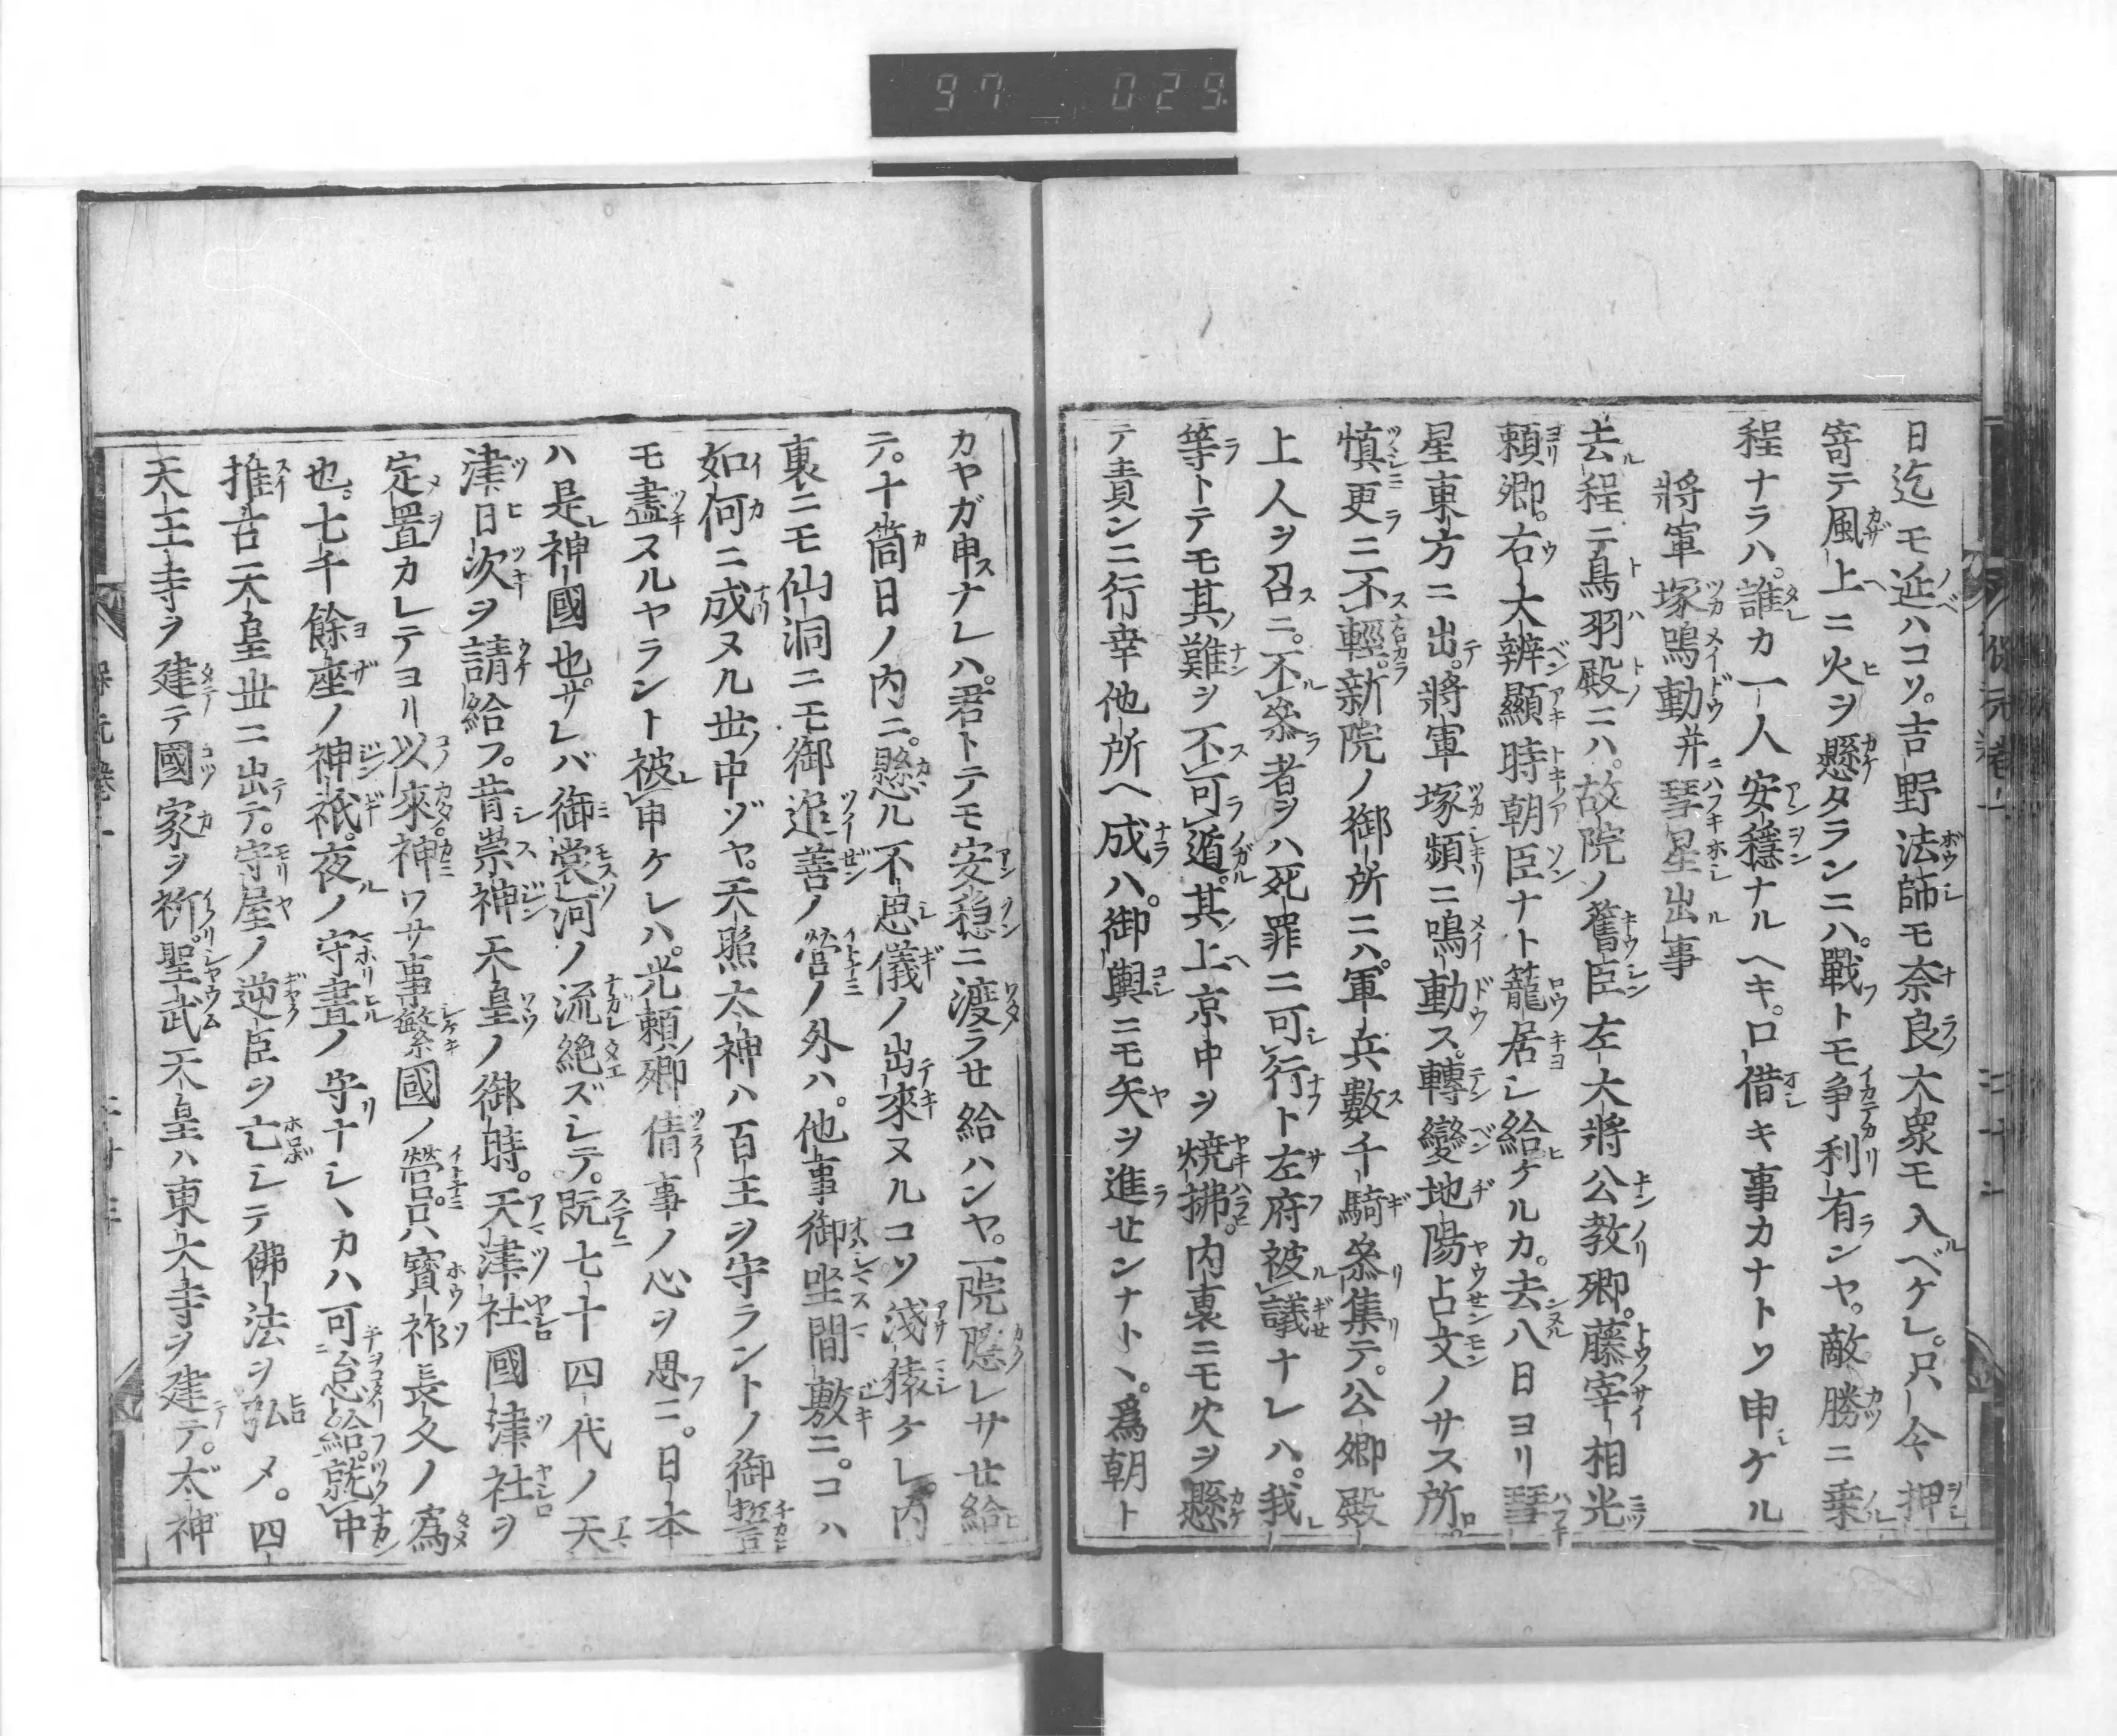 97 029
日迄モ延ハコソ。吉野法師モ奈良大衆モ入ベケレ。只今押
寄テ風上ニ火ヲ懸タランニハ。戰トモ争利有ンヤ。敵勝ニ乗
程ナラハ。誰カ一人安穩ナルヘキ。口借キ事カナトソ申ケル
將軍塚鳴動并彗星出事
去程ニ鳥羽殿ニハ。故院ノ舊臣左大將公教卿。藤宰相光
頼卿。右大辨顯時朝臣ナト籠居シ給ケルカ。去八日ヨリ彗
星東方ニ出。將軍塚頻ニ鳴動ス。轉變地陽占文ノサス所。
慎更ニ不輕。新院ノ御所ニハ。軍兵數千騎参集テ。公卿殿
上人ヲ召ニ。不参者ヲハ死罪ニ可行ト左府被議ナレハ。我
等トテモ其難ヲ不可遁。其上京中ヲ焼拂。内裏ニモ火ヲ懸
テ責ンニ行幸他所ヘ成ハ。御輿ニモ矢ヲ進せンナト、。爲朝ト
カヤガ申ナレハ。君トテモ安穏ニ渡ラせ給ハンヤ。一院隱レサせ給
テ。十箇日ノ内ニ。懸ル不思儀ノ出來ヌルコソ淺猿ケレ。内
裏ニモ仙洞ニモ御追善ノ營ノ外ハ。他事御坐間敷ニ。コハ
如何ニ成ヌル世ノ中ゾヤ。天照太神ハ百王ヲ守ラントノ御誓
モ盡スルヤラント被申ケレハ。光頼卿倩事ノ心ヲ思ニ。日本
ハ是神國也。サレバ御裳河ノ流絶ズシテ。既七十四代ノ天
津日次ヲ請給フ。昔崇神天皇ノ御時。天津社國津社ヲ
定置カレテヨリ以來神ワサ事繁國ノ營只寶祚長久ノ爲
也。七千餘座ノ神祇。夜ノ守晝ノ守ナシヽカハ可怠給。就中
推古天皇世ニ出テ。守屋ノ逆臣ヲ亡シテ佛法ヲ弘メ。四
天王寺ヲ建テ國家ヲ祈。聖武天皇ハ東大寺ヲ建テ。太神